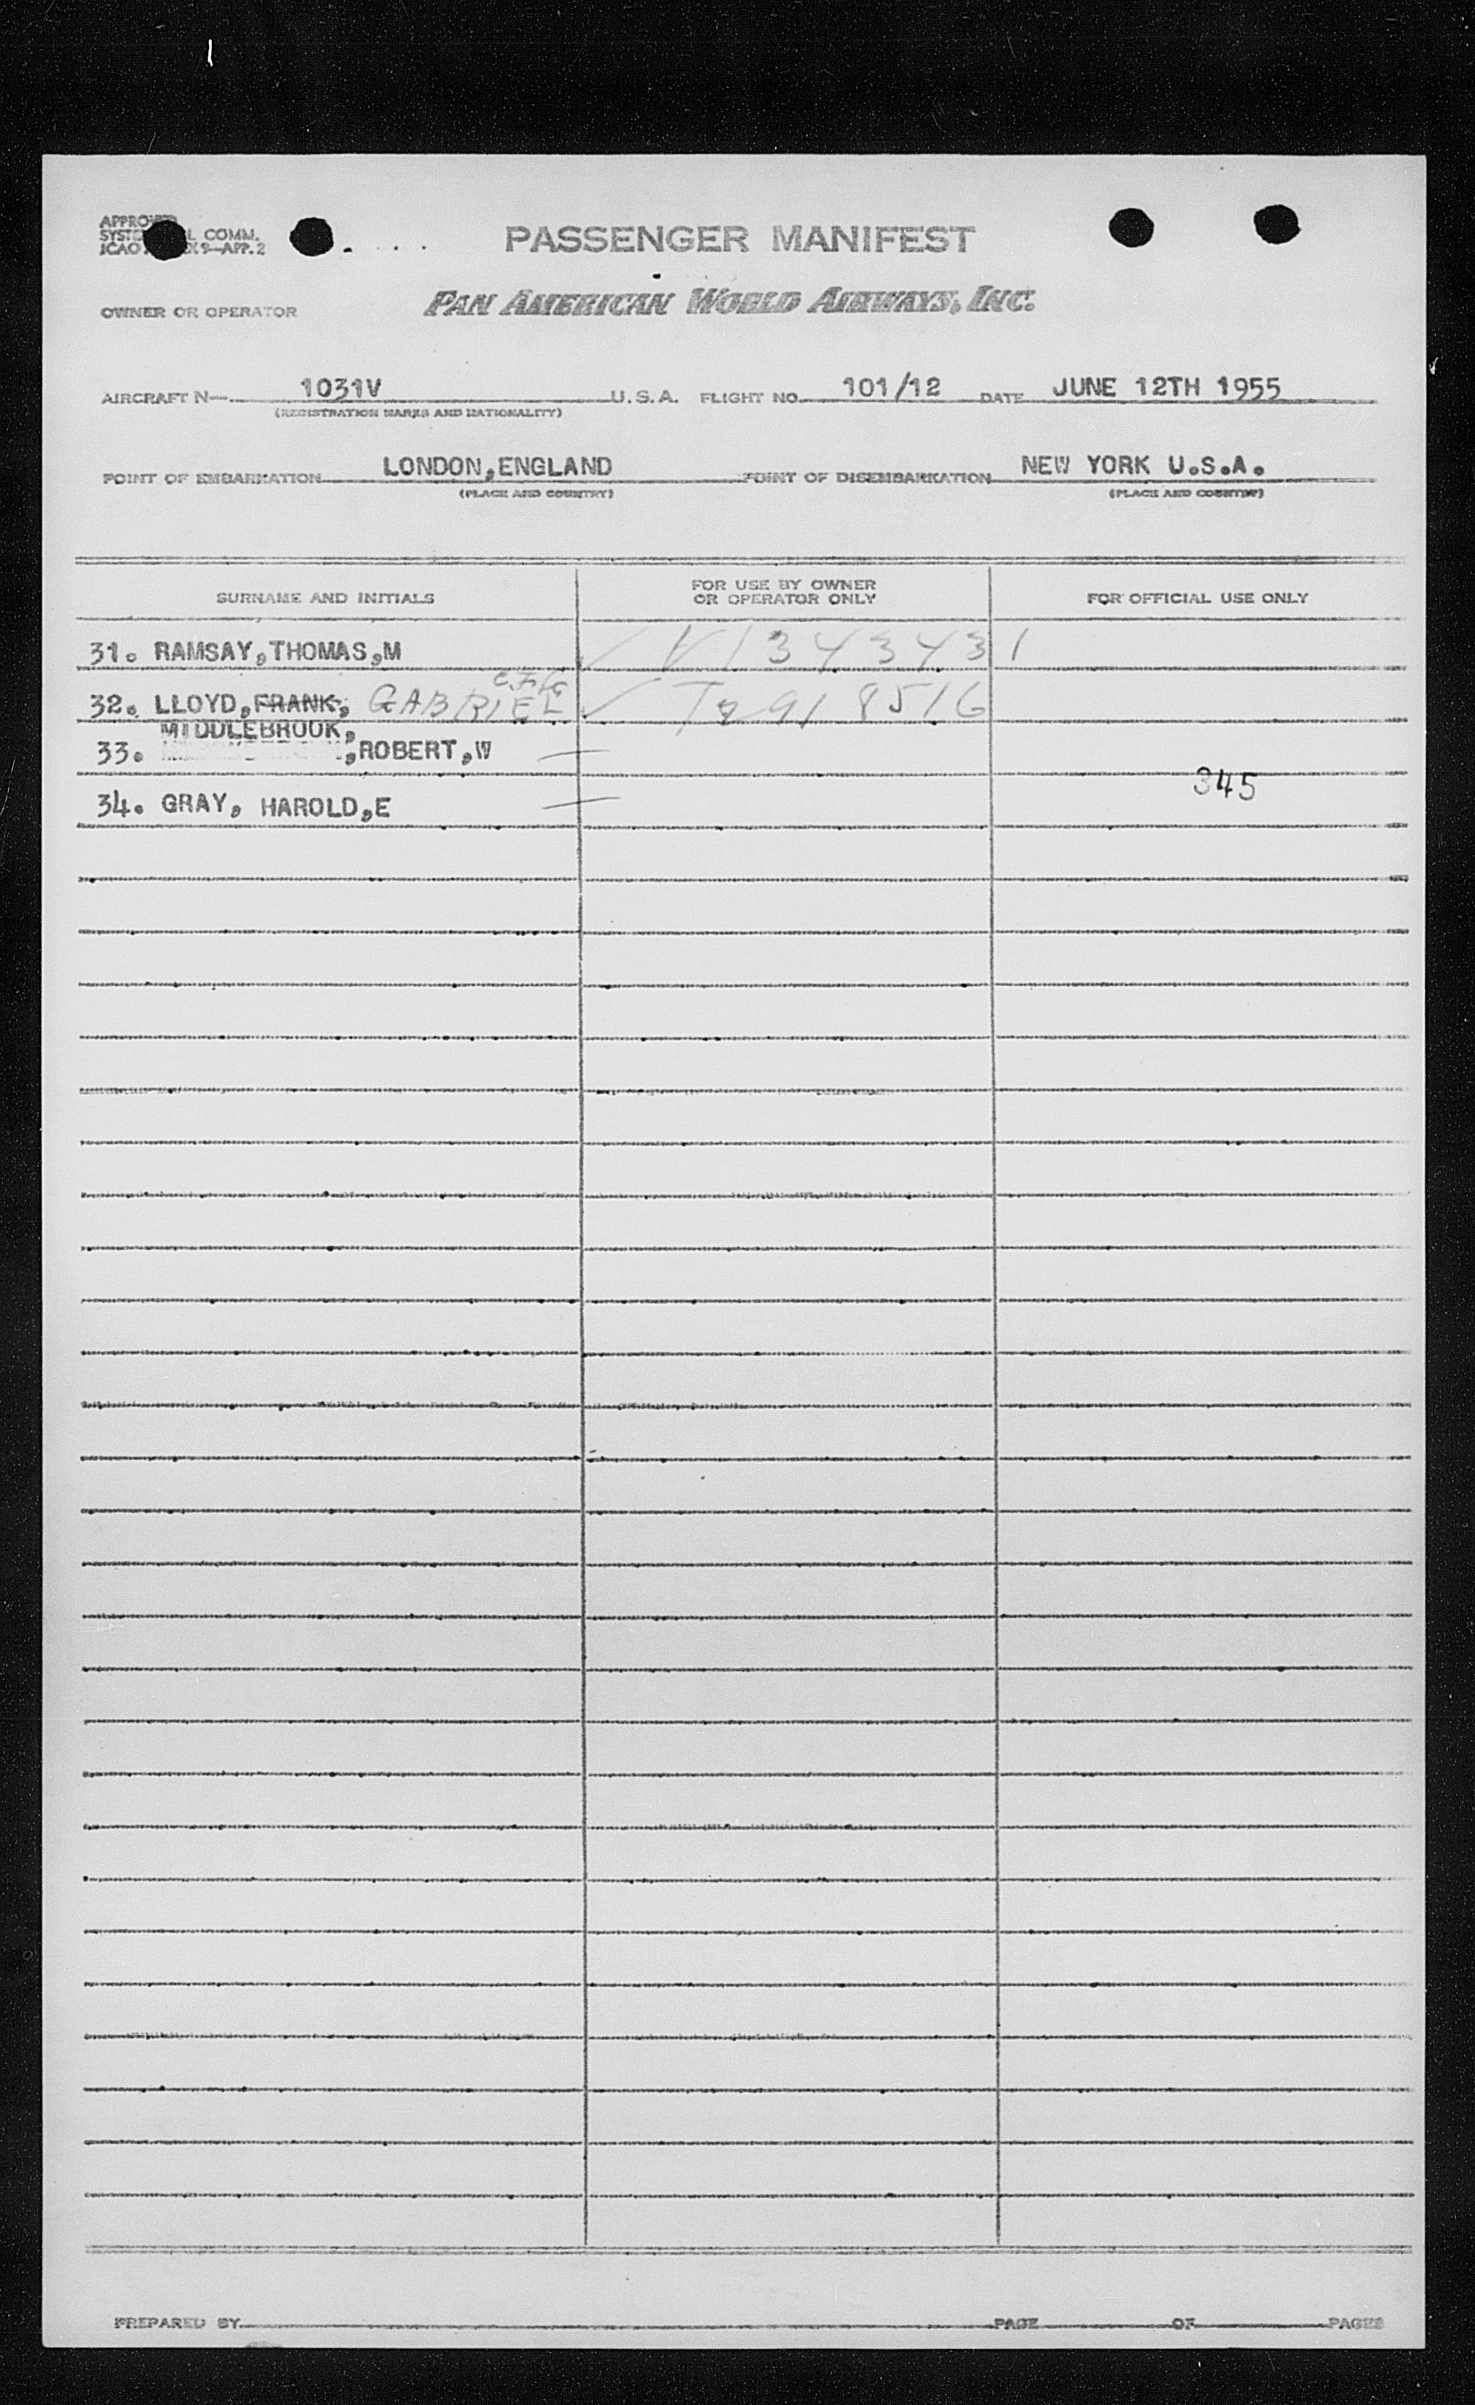 APPROVED
SYST L COMM.
ICAO 9—APP. 2
PASSENGER MANIFEST
OWNER OR OPERATOR PAN AMERICAN WORLD AIRWAYS, INC.
AIRCRAFT N— 1031V U.S.A. FLIGHT NO. 101/12 DATE JUNE 12TH 1955
(REGISTRATION MARKS AND NATIONALITY)
POINT OF EMBARKATION LONDON,ENGLAND POINT OF DISEMBARKATION NEW YORK U.S.A.
(PLACE AND COUNTRY) (PLACE AND COUNTRY)
SURNAME AND INITIALS FOR USE BY OWNER OR OPERATOR ONLY FOR OFFICIAL USE ONLY
31. RAMSAY,THOMAS,M ✓ V1343431
32. LLOYD,FRANK, GABRIEL ✓
MIDDLEBROOK,
33. ,ROBERT,W —
34. GRAY, HAROLD,E — 345
PREPARED BY PAGE OF PAGES